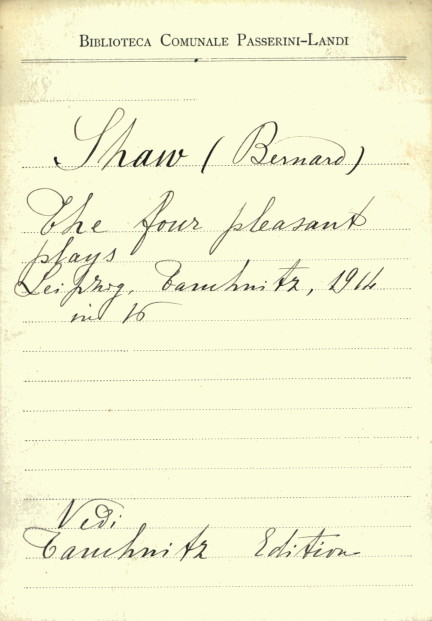 Biblioteca Comunale Passerini-Landi
Shaw (Bernard)
The four pleasant
plays
Leipzig, Tauchnitz, 1914
in 16
Vedi
Tauchnitz Edition